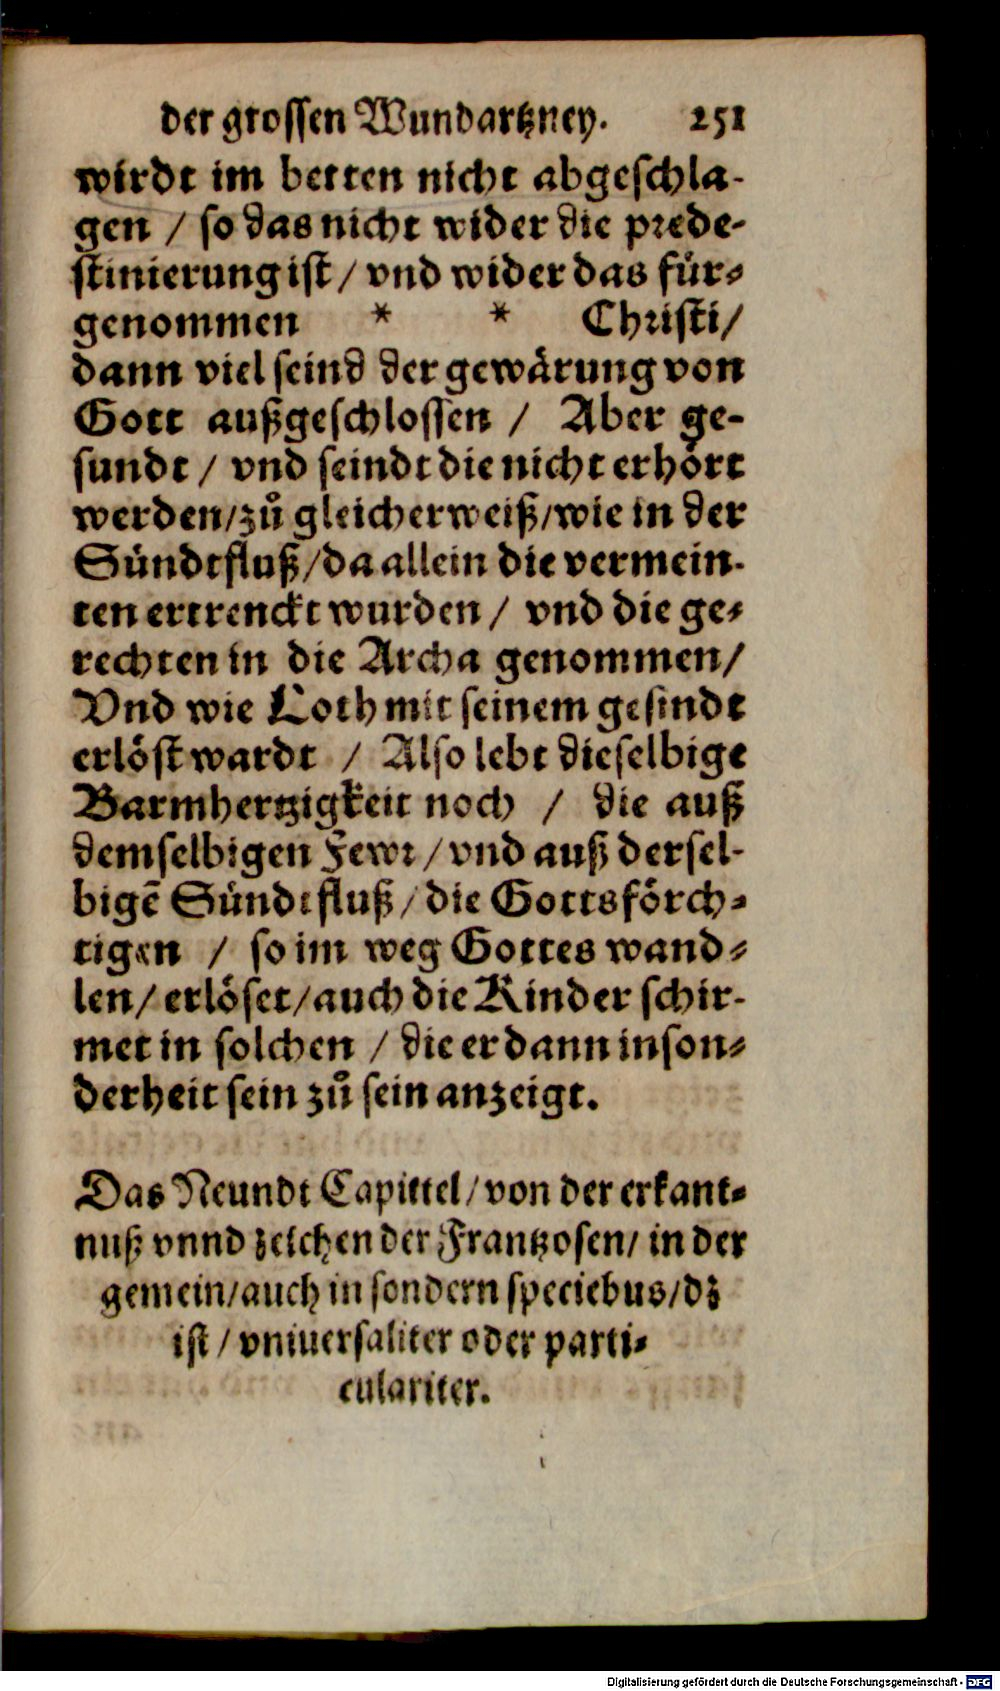 der grossen Wundartzney. 251
wirdt im betten nicht abgeschla-
gen / so das nicht wider die prede-
stinierung ist / vnd wider das für-
genommen * * Christi /
dann viel seind der gewärung von
Gott außgeschlossen / Aber ge-
sundt / vnd seindt die nicht erhört
werden / zů gleicherweiß / wie in der
Sündtfluß / da allein die vermein-
ten ertrenckt wurden / vnd die ge-
rechten in die Archa genommen /
Vnd wie Loth mit seinem gesindt
erlöst wardt / Also lebt dieselbige
Barmhertzigkeit noch / die auß
demselbigen Fewr / vnd auß dersel-
bigē Sündtfluß / die Gottsförch-
tigen / so im weg Gottes wand-
len / erlöset / auch die Kinder schir-
met in solchen / die er dann inson-
derheit sein zů sein anzeigt.
Das Neundt Capittel / von der erkant-
nuß vnnd zeichen der Frantzosen / in der
gemein / auch in sondern speciebus / dz
ist / vniuersaliter oder parti-
culariter.
Digitalisierung gefördert durch die Deutsche Forschungsgemeinschaft - DFG